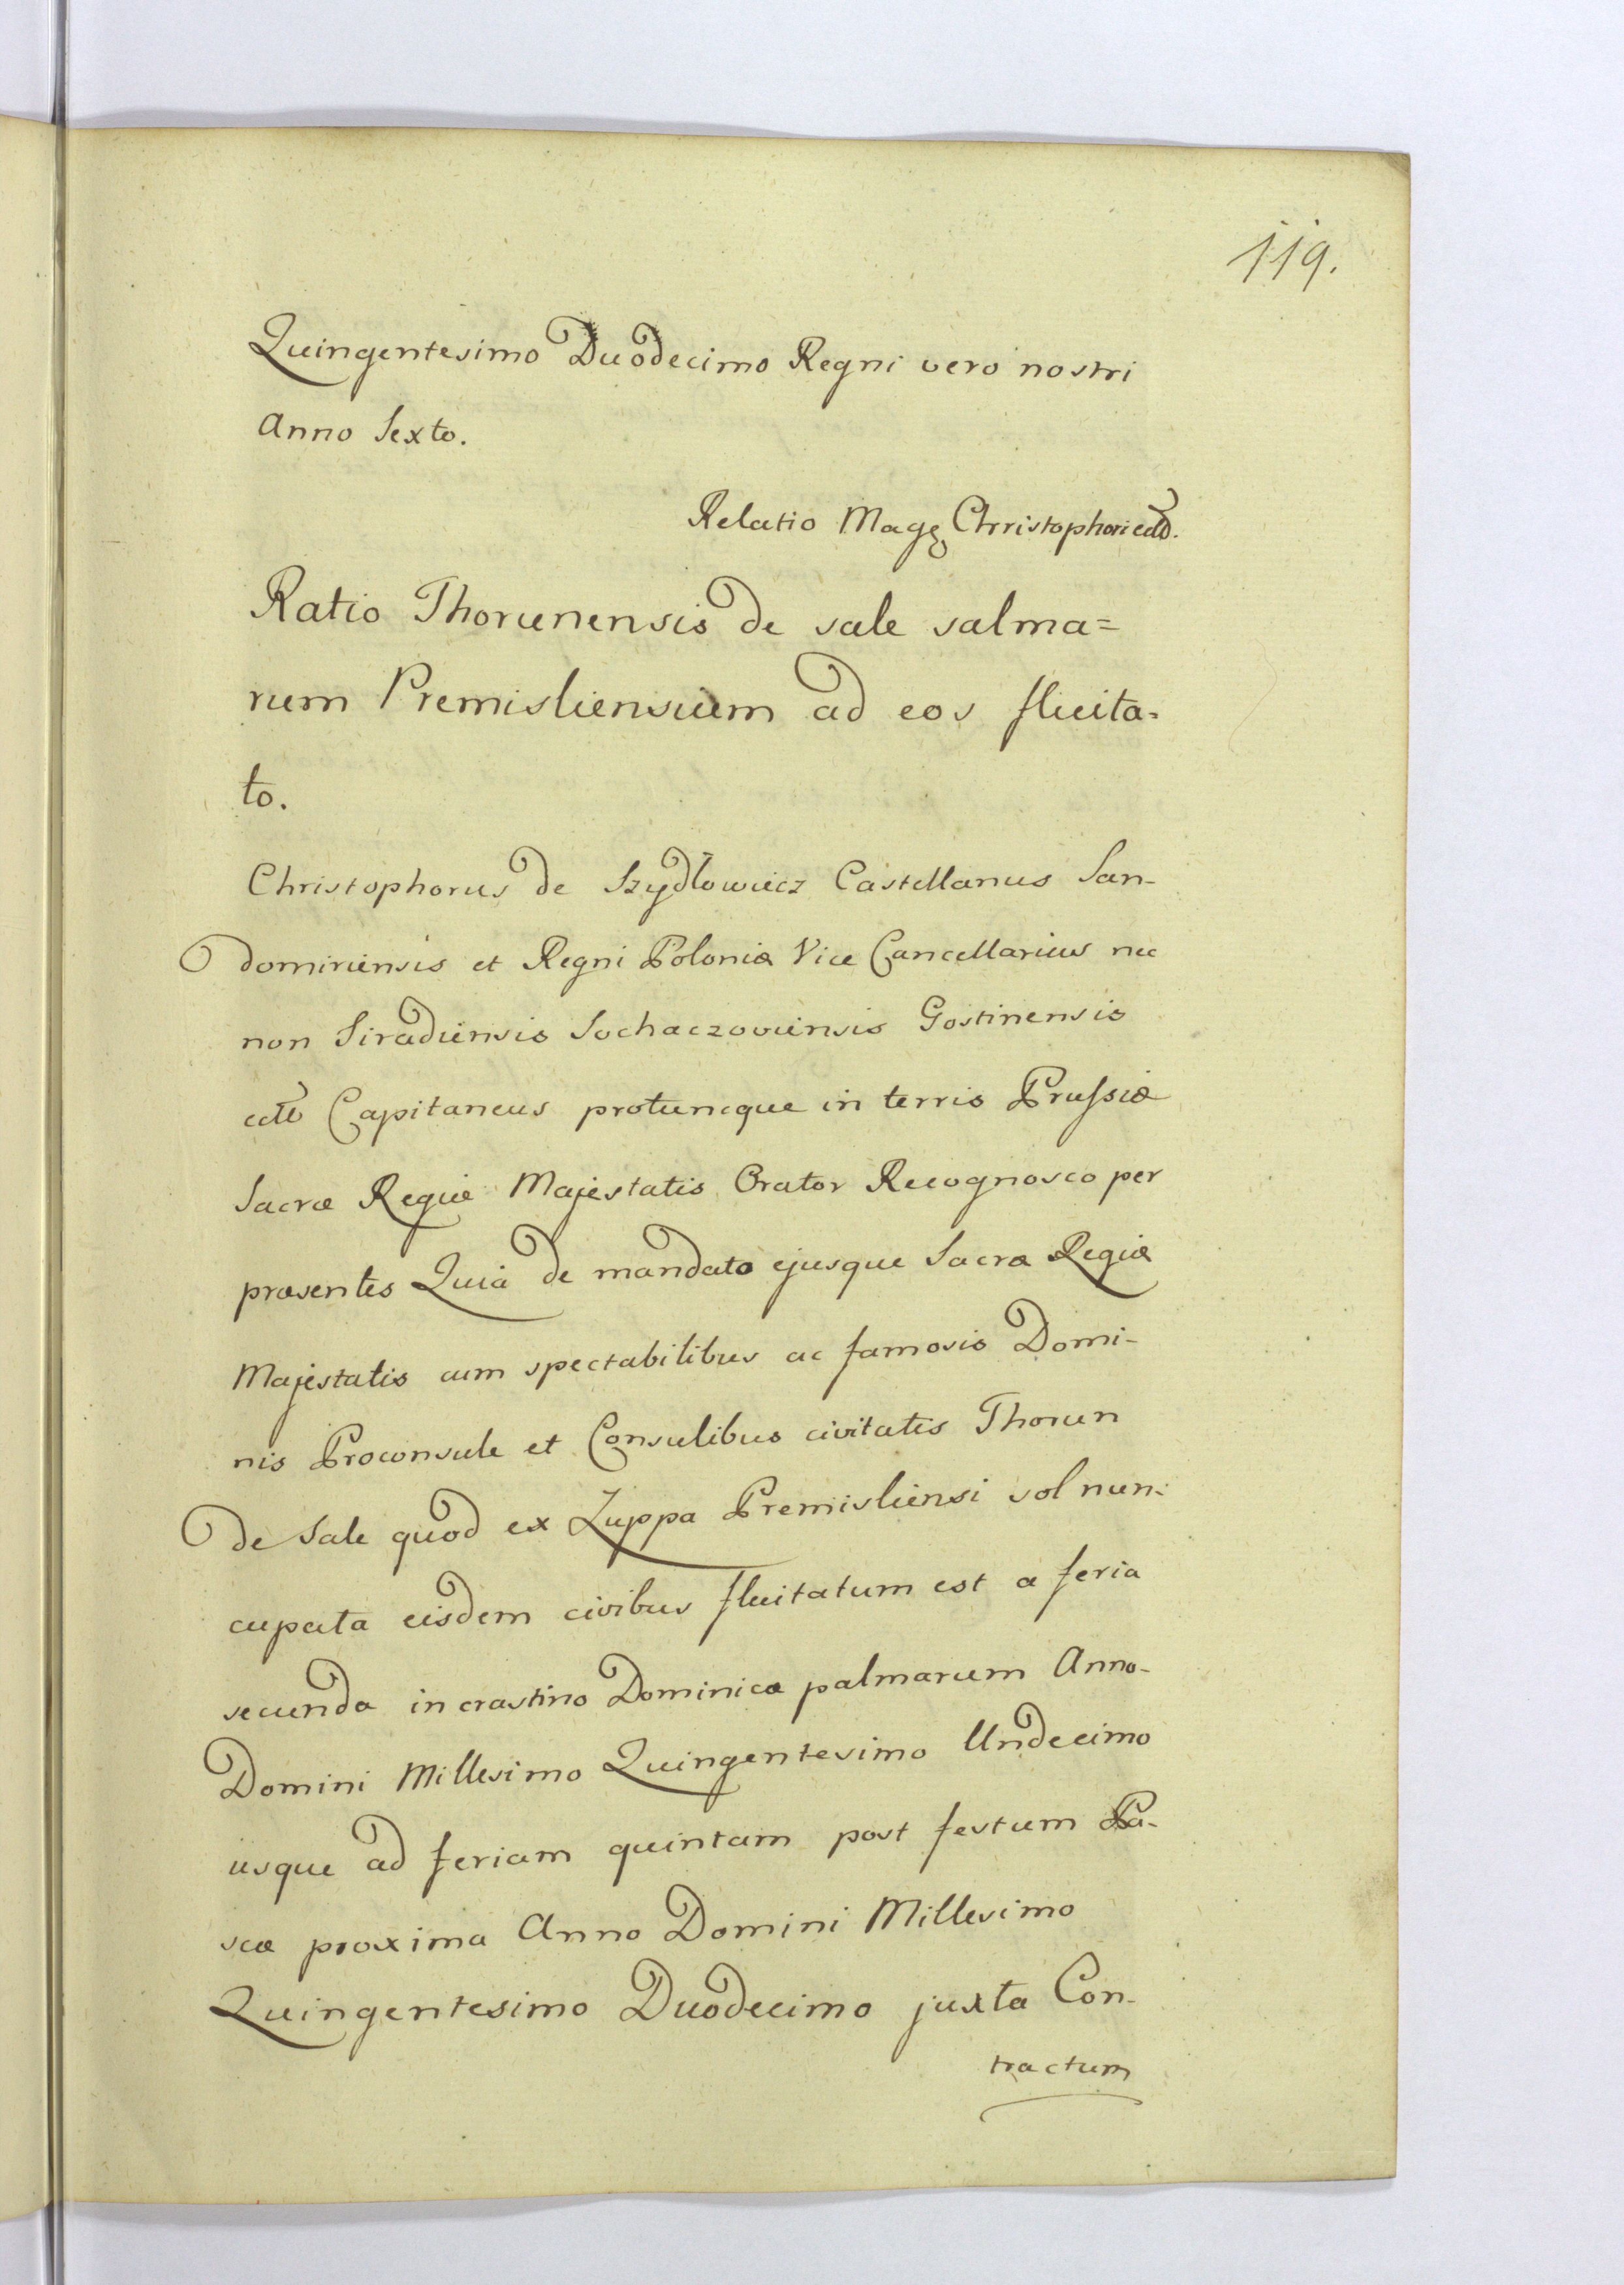 119.
Quingentesimo Duodecimo Regni vero nostri
Anno Sexto.
Relatio Magcę Christophori ectt.
Ratio Thorunensis de sale salma=
rum Premisliensium ad eos fluita-
to.
Christophorus de Szydłowiecz Castellanus San-
domiriensis et Regni Poloniæ Vice Cancellarius nec
non Siradiensis Sochaczoviensis Gostinensis
ectt Capitaneus protuncque in terris Prussiæ
Sacræ Regiæ Majestatis Orator Recognosco per
præsentes Quia de mandato ejusque Sacræ Regiæ
Majestatis cum spectabilibus ac famosis Domi-
nis Proconsule et Consulibus civitatis Thorun
de Sale quod ex Zuppa Premisliensi sol nun-
cupata eisdem civibus fluitatum est a feria
secunda in crastino Dominicæ palmarum Anno-
Domini Millesimo Quingentesimo Undecimo
usque ad feriam quintam post festum Pa-
scæ proxima Anno Domini Millesimo
Quingentesimo Duodecimo juxta Con-
tractum